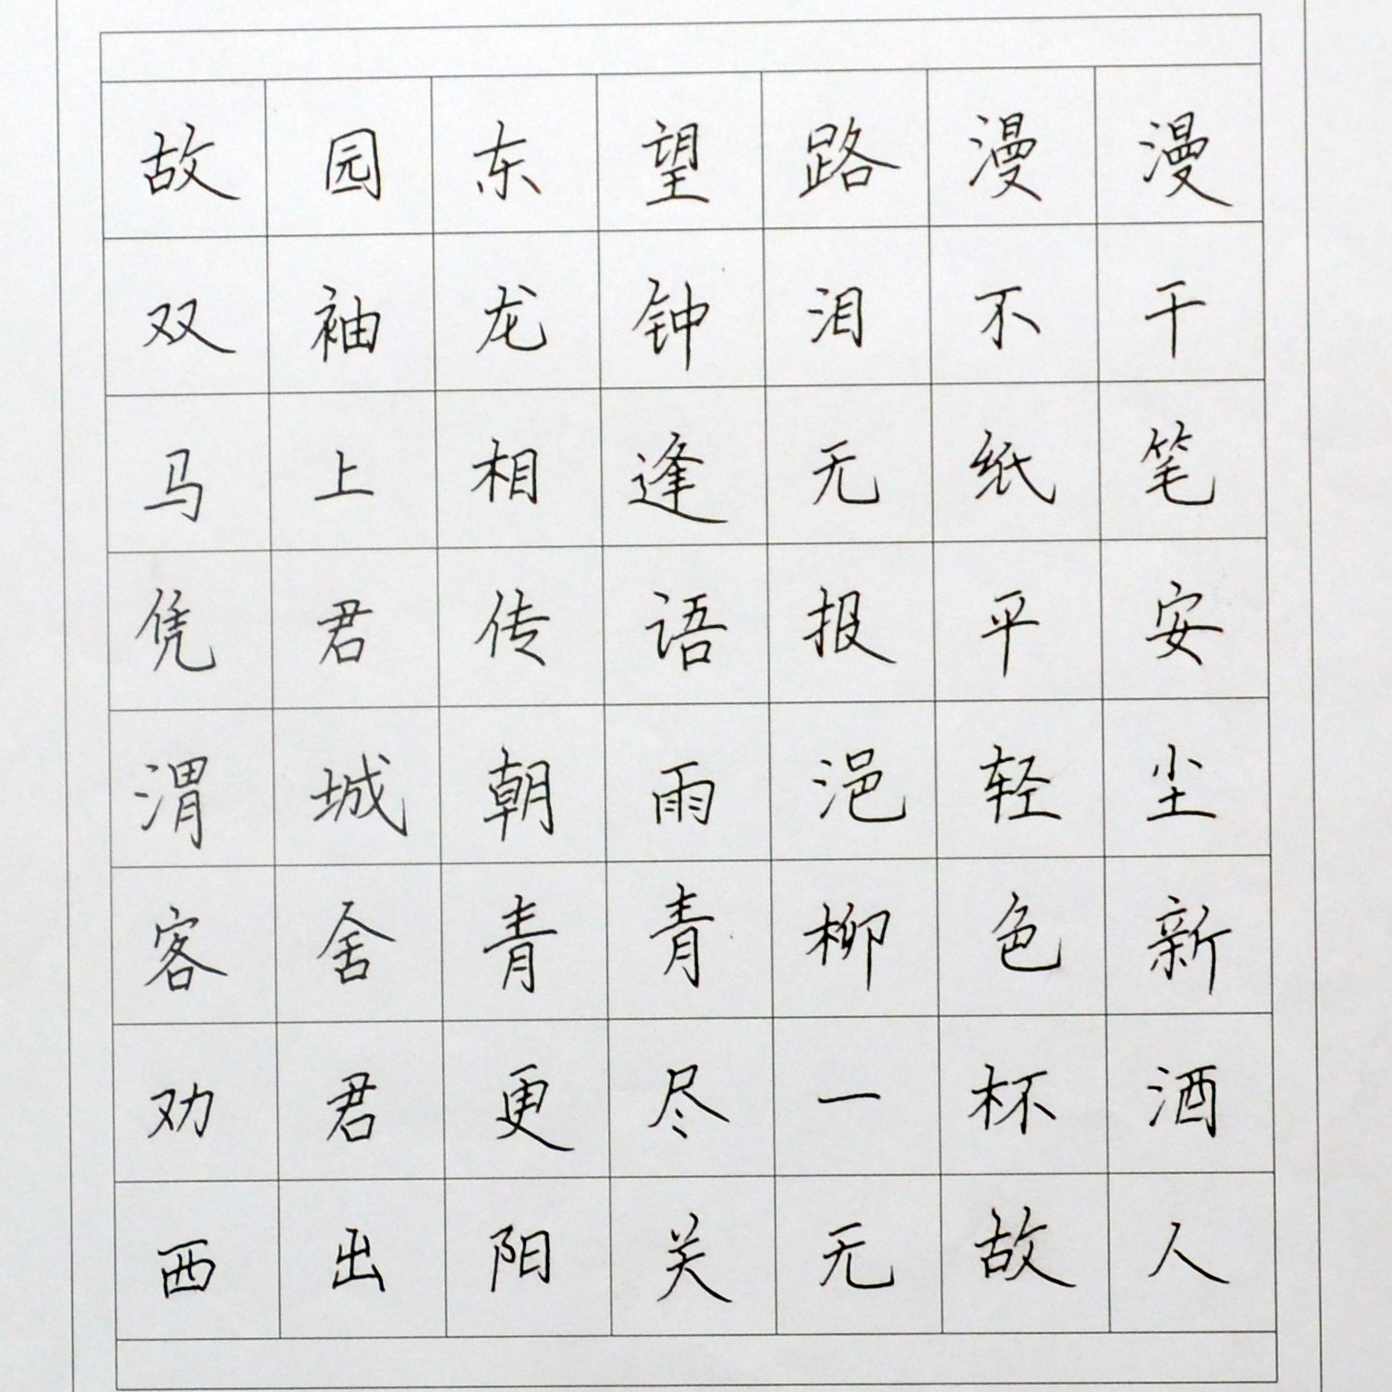 故园东望路漫漫
双袖龙钟泪不干
马上相逢无纸笔
凭君传语报平安
渭城朝雨浥轻尘
客舍青青柳色新
劝君更尽一杯酒
西出阳关无故人